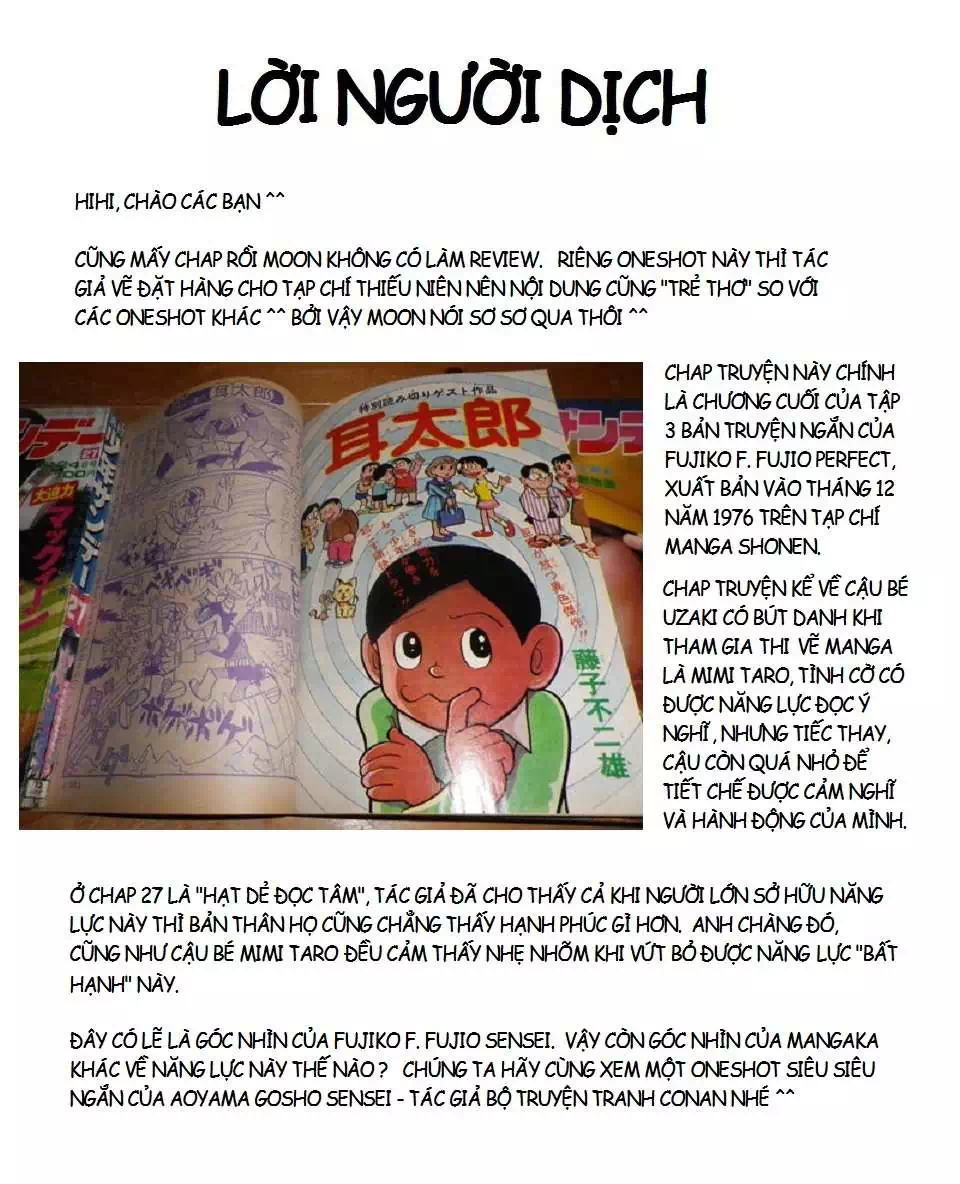 LỜI NGƯỜI DỊCH
HIHI, CHÀO CÁC BẠN ^^
CŨNG MẤY CHAP RỒI MOON KHÔNG CÓ LÀM REVIEW. RIÊNG ONESHOT NÀY THÌ TÁC
GIẢ VẼ ĐẶT HÀNG CHO TẠP CHÍ THIẾU NIÊN NÊN NỘI DUNG CŨNG "TRẺ THƠ" SO VỚI
CÁC ONESHOT KHÁC ^^ BỞI VẬY MOON NÓI SƠ SƠ QUA THÔI ^^
耳太郎
特別読み切りゲスト作品
耳太郎
藤子不二雄
大迫力
マックィーン
CHAP TRUYỆN NÀY CHÍNH
LÀ CHƯƠNG CUỐI CỦA TẬP
3 BẢN TRUYỆN NGẮN CỦA
FUJIKO F. FUJIO PERFECT,
XUẤT BẢN VÀO THÁNG 12
NĂM 1976 TRÊN TẠP CHÍ
MANGA SHONEN.
CHAP TRUYỆN KỂ VỀ CẬU BÉ
UZAKI CÓ BÚT DANH KHI
THAM GIA THI VẼ MANGA
LÀ MIMI TARO, TÌNH CỜ CÓ
ĐƯỢC NĂNG LỰC ĐỌC Ý
NGHĨ, NHƯNG TIẾC THAY,
CẬU CÒN QUÁ NHỎ ĐỂ
TIẾT CHẾ ĐƯỢC CẢM NGHĨ
VÀ HÀNH ĐỘNG CỦA MÌNH.
Ở CHAP 27 LÀ "HẠT DẺ ĐỌC TÂM", TÁC GIẢ ĐÃ CHO THẤY CẢ KHI NGƯỜI LỚN SỞ HỮU NĂNG
LỰC NÀY THÌ BẢN THÂN HỌ CŨNG CHẲNG THẤY HẠNH PHÚC GÌ HƠN. ANH CHÀNG ĐÓ,
CŨNG NHƯ CẬU BÉ MIMI TARO ĐỀU CẢM THẤY NHẸ NHÕM KHI VỨT BỎ ĐƯỢC NĂNG LỰC "BẤT
HẠNH" NÀY.
ĐÂY CÓ LẼ LÀ GÓC NHÌN CỦA FUJIKO F. FUJIO SENSEI. VẬY CÒN GÓC NHÌN CỦA MANGAKA
KHÁC VỀ NĂNG LỰC NÀY THẾ NÀO ? CHÚNG TA HÃY CÙNG XEM MỘT ONESHOT SIÊU SIÊU
NGẮN CỦA AOYAMA GOSHO SENSEI - TÁC GIẢ BỘ TRUYỆN TRANH CONAN NHÉ ^^